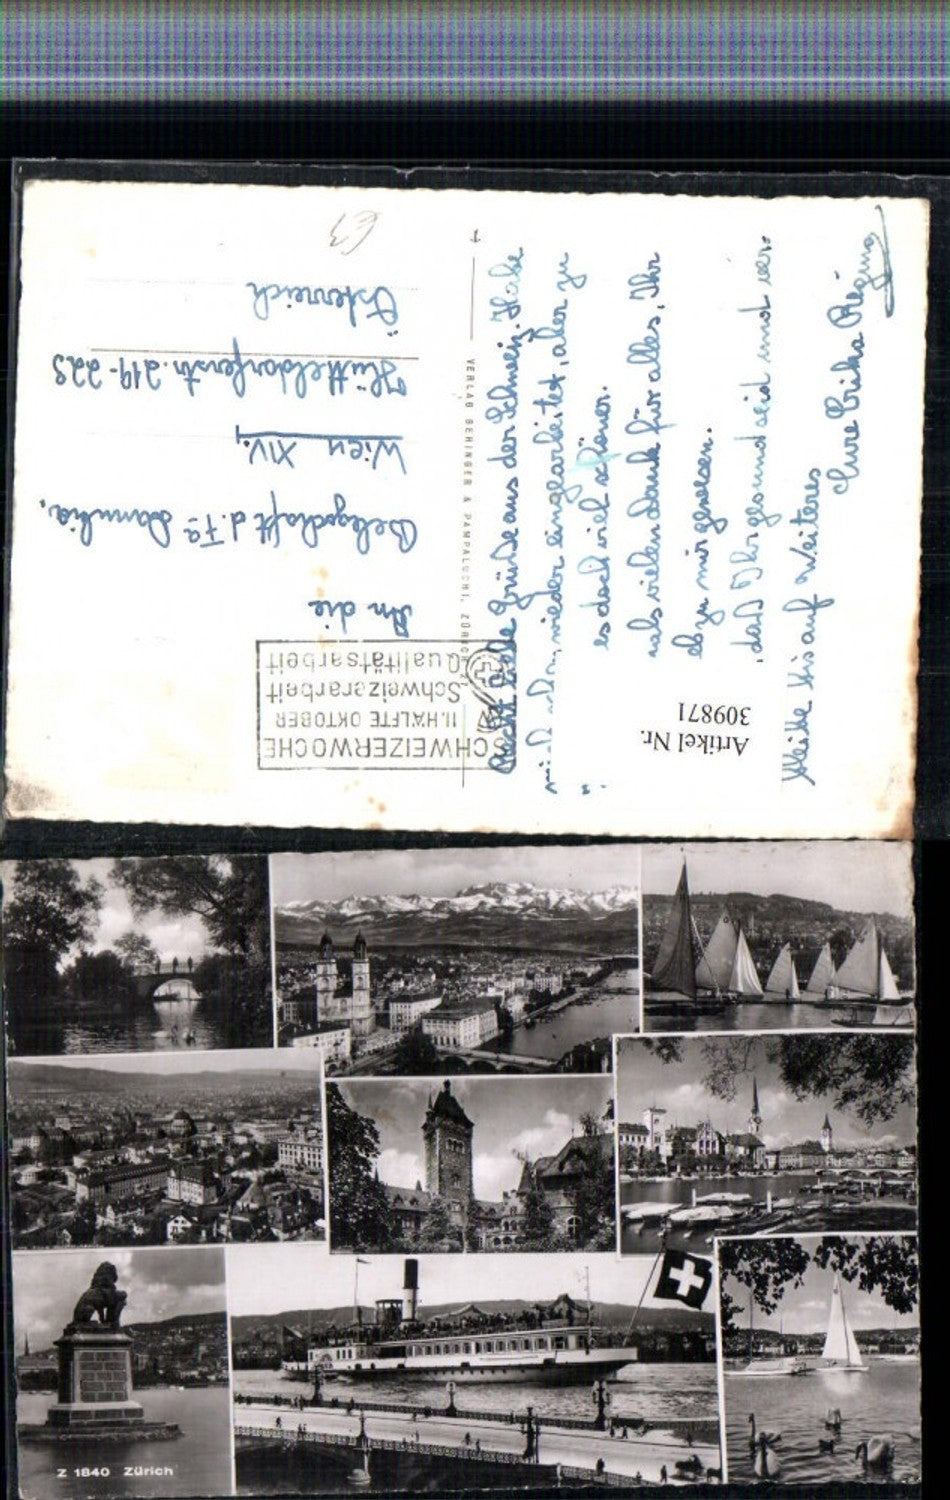 Recht viele Grüße aus der Schweiz. Habe
mich schon wieder eingearbeitet, aber zu
es doch viel schöner.
vielen dank für alles, Ihr
zu mir gewesen.
daß Ihr gesund seid und
bis auf Weiteres
Eure Erika
VERLAG BERINGER & PAMPALUCHI, ZÜRICH
SCHWEIZERWOCHE
II. HÄLFTE OKTOBER
Schweizerarbeit
Qualitätsarbeit
An die
Belegschaft d. Fa
Wien XIV.
Hütteldorferstr. 219-223
Österreich
Artikel Nr.
309871
Z 1840 Zürich